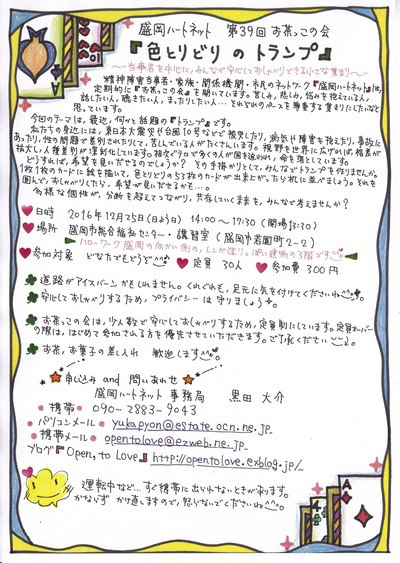 盛岡ハートネット 第39回 お茶っこの会
『色とりどりのトランプ』
～当事者を中心に、みんなが安心しておしゃべりできる小さな集まり～
精神障害当事者・家族・関係機関・市民のネットワーク『盛岡ハートネット』は、
定期的に『お茶っこの会』を開いています。苦しみ、悲しみ、悩みを抱えている人、
話したい人、聴きたい人、まったりしたい人… それぞれのペースを尊重する集まりにしたいなと
思っています。
今回のテーマは、最近、何かと話題の『トランプ』です。
私たちの身近には、東日本大震災や台風10号などで被災したり、病気や障害を抱えたり、事故に
あったり、性の問題で差別されたりして、苦しんでいる人がたくさんいます。視野を世界に広げれば、格差が
拡大し、人種差別が深刻化しています。相次ぐテロで多くの人が国を追われ、命を落としています。
どうすれば、希望を見いだせるのでしょうか? その手掛かりとして、みんなでトランプを作りませんか。
1枚1枚のカードに絵を描いて、色とりどりの53枚のカードが出来上がったら、札に並べましょう。それを
囲んで、おしゃべりしたら、希望が見いだせるかも…。
多様な個性が、分断を超えてつながり、共存していく未来を、みんなで考えませんか?
日時 2016年12月25日(日よう日) 14:00～17:30 (開場13:30)
場所 盛岡市総合福祉センター・講習室 (盛岡市若園町2-2)
ハローワーク盛岡の向かい側の、レンガ造りっぽい建物の3階です
参加対象 どなたでもどうぞ 定員 30人 参加費 300円
道路がアイスバーンかもしれません。くれぐれも、足元に気を付けてくださいね
安心しておしゃべりするため、プライバシーは守りましょう
お茶っこの会は、少人数で安心しておしゃべりするため、定員制にしています。定員オーバー
の際は、はじめて参加される方を優先させていただきます。ご了承ください
お茶、お菓子の差し入れ 歓迎します
申し込み and 問い合わせ
盛岡ハートネット 事務局 黒田 大介
携帯 090-2883-9043
パソコンメール yukapyon@estate.ocn.ne.jp
携帯メール opentolove@ezweb.ne.jp
ブログ『Open, to Love』http://opentolove.exblog.jp/
運転中など… すぐ携帯に出られないときがあります。
かならず かけ直しますので、怒らないでくださいね